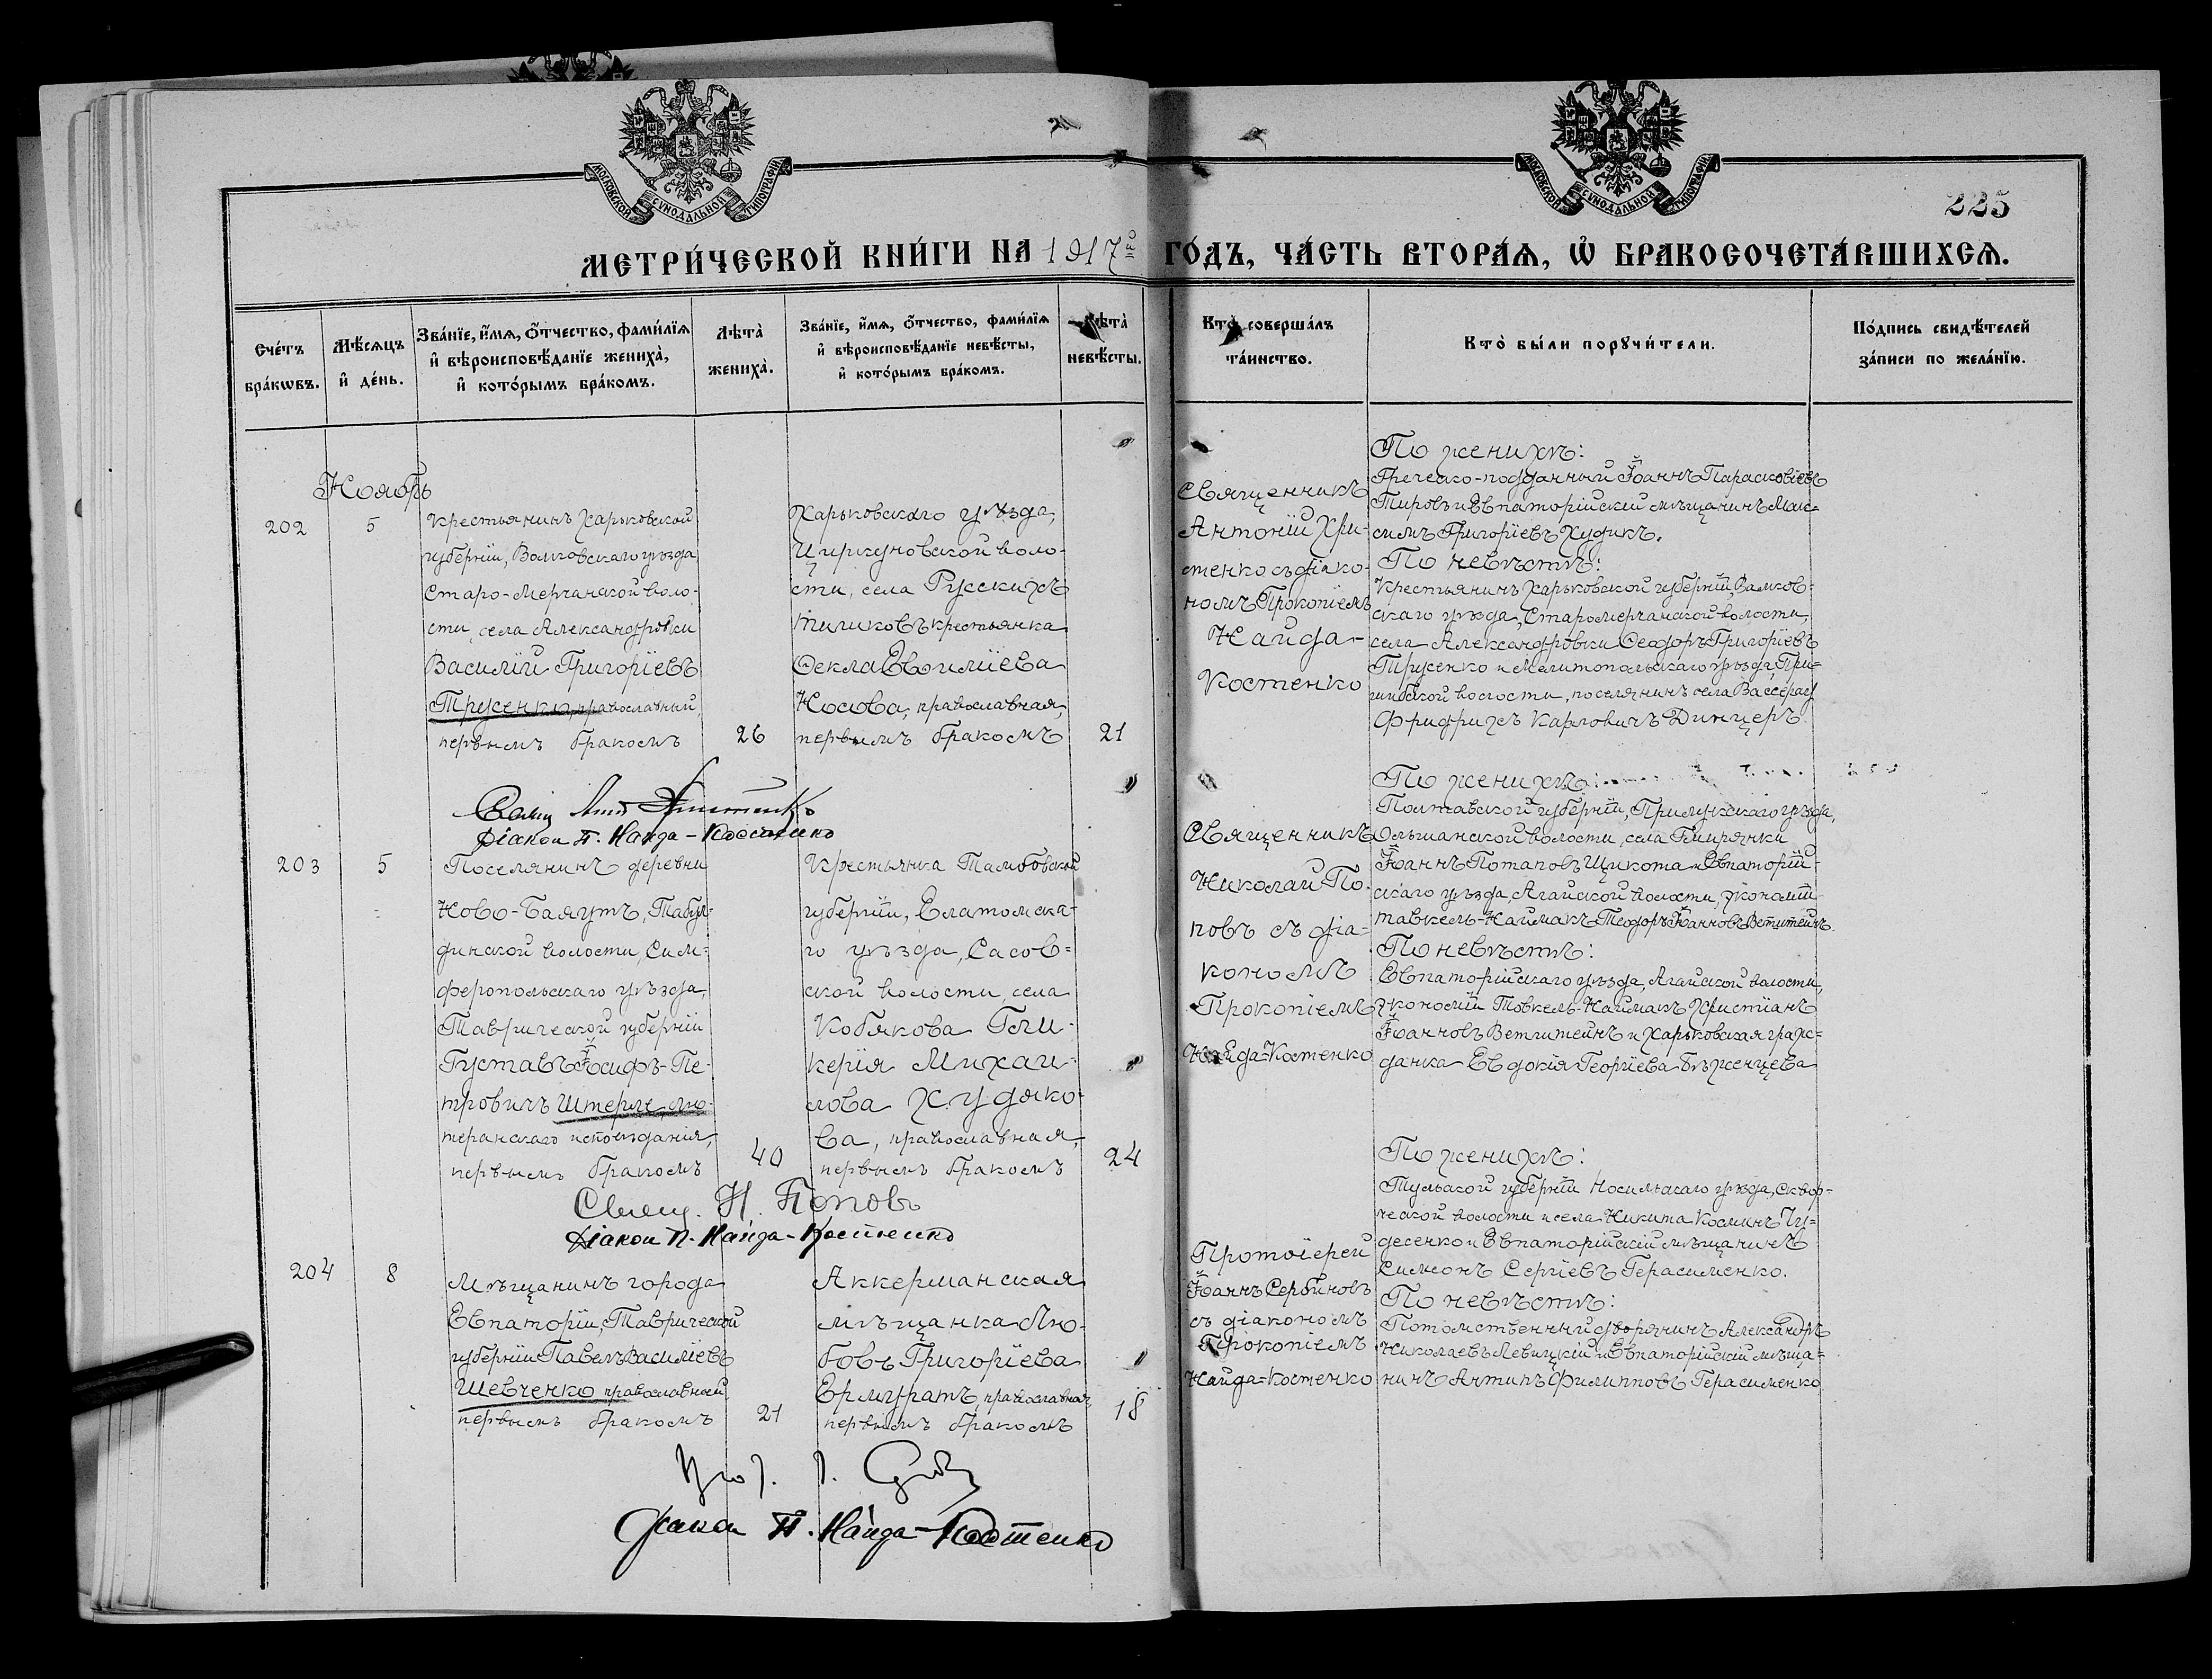 МОСКОВСКОЙ СУНОДАЛЬНОЙ ТИПОГРАФІИ
МОСКОВСКОЙ СУНОДАЛЬНОЙ ТИПОГРАФІИ
225
МЕТРИ́ЧЕСКОЙ КНИ́ГИ НА 1917й ГО́ДЪ, ЧА́СТЬ ВТОРА́Ѧ, Ѡ҆ БРАКОСОЧЕТА́ВШИХСѦ.
Сче́тъ
бра́кѡвъ.
Мѣ́сѧцъ
и҆ де́нь.
Зва́нїе, и҆́мѧ, ѻ҆́тчество, фами́лїѧ
и҆ вѣроисповѣ́данїе жениха̀,
и҆ кото́рымъ бра́комъ.
Лѣта̀
жениха̀.
Зва́нїе, и҆́мѧ, ѻ҆́тчество, фами́лїѧ
и҆ вѣроисповѣ́данїе невѣ́сты,
и҆ кото́рымъ бра́комъ.
Лѣта̀
невѣ́сты.
Кто̀ соверша́лъ
та́инство.
Кто̀ бы́ли порꙋчи́тели.
По́дпись свидѣ́телей
за́писи по жела́нїю.
Ноябрь
202
5
Крестьянинъ Харьковской
губерніи, Валковскаго уѣзда
Старо-Мерчанской воло-
сти, села Александровки
Василій Григоріевъ
Трусенко, православный,
первымъ бракомъ
26
Харьковскаго уѣзда,
Циркуновской воло-
сти, села Русскихъ
Тишковъ крестьянка
Ѳекла Евѳиміева
Носова, православная,
первымъ бракомъ
21
Священникъ
Антоній Хри-
стенко съ діако-
номъ Прокопіемъ
Найда-
Костенко
По женихѣ:
Греческо-подданный Іоаннъ Параскевіевъ
Тировъ и Евпаторійскій мѣщанинъ Мак-
симъ Григоріевъ Худикъ.
По невѣстѣ:
Крестьянинъ Харьковской губерніи, Валков-
скаго уѣзда, Старомерчанской волости,
села Александровки Ѳеодоръ Григоріевъ
Трусенко и Мелитопольскаго уѣзда, При-
шибской волости, поселянинъ села Вассерау
Фридрихъ Карловичъ Динцеръ.
Свящ. Ант. Христенко
Діакон П. Найда-Костенко
203
5
Поселянинъ деревни
Ново-Баяутъ, Табул-
динской волости, Сим-
феропольскаго уѣзда,
Таврической губерніи
Густавъ Іосифъ-Пе-
тровичъ Штерле, лю-
теранскаго исповѣданія,
первымъ бракомъ
40
Крестьянка Тамбовской
губерніи, Елатомска-
го уѣзда, Сасов-
ской волости, села
Кобякова Гли-
керія Михаи-
лова Худяко-
ва, православная,
первымъ бракомъ
24
Священникъ
Николай По-
повъ съ діа-
кономъ
Прокопіемъ
Найда-Костенко
По женихѣ:
Полтавской губерніи, Прилукскаго уѣзда,
Ольшанской волости, села Гмирянки
Іоаннъ Потаповъ Щикота и Евпаторій-
скаго уѣзда, Агайской волости, экономіи
Тавкель-Найманъ Теодоръ Іоанновъ Ветштейнъ.
По невѣстѣ:
Евпаторійскаго уѣзда, Агайской волости,
экономіи Товкель-Найманъ Христіанъ
Іоанновъ Ветштейнъ и Харьковская граж-
данка Евдокія Георгіева Бѣженцева
Свящ. Н. Попов
Діакон П. Найда-Костенко
204
8
Мѣщанинъ города
Евпаторіи, Таврической
губерніи Павелъ Василіевъ
Шевченко православный
первымъ бракомъ
21
Аккерманская
мѣщанка Лю-
бовь Григоріева
Ермуратъ, православная,
первымъ бракомъ
18
Протоіерей
Іоаннъ Сербиновъ
съ діакономъ
Прокопіемъ
Найда-Костенко
По женихѣ:
Тульской губерніи Носильскаго уѣзда, Сквор-
ческой волости и села Никита Косминъ Чу-
десенко и Евпаторійскій мѣщанинъ
Симеонъ Сергіевъ Герасименко.
По невѣстѣ:
Потомственный дворянинъ Александръ
Николаевъ Левицкій и Евпаторійскій мѣща-
нинъ Антипъ Филипповъ Герасименко
Діакон П. Найда-Костенко